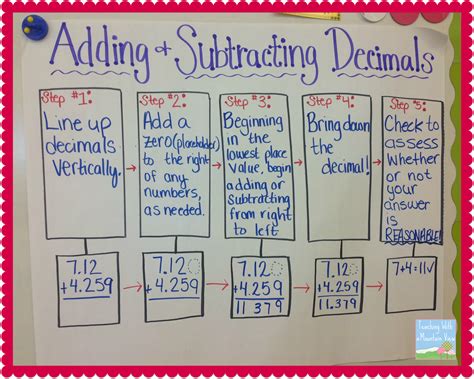 Adding + Subtracting Decimals
Step #1:
Line up
decimals
vertically.
Step #2:
Add a
zero (placeholder)
to the right
of any
numbers,
as needed.
Step #3:
Beginning
in the
lowest place
value, begin
adding or
subtracting
from right
to left
Step #4:
Bring down
the
decimal!
Step #5:
Check to
assess
whether
or not
your
answer
is
REASONABLE!
7.12
+4.259
7.12
+4.259
7.12
+4.259
11 379
7.12
+4.259
11.379
7+4=11√
Teaching With
a Mountain View